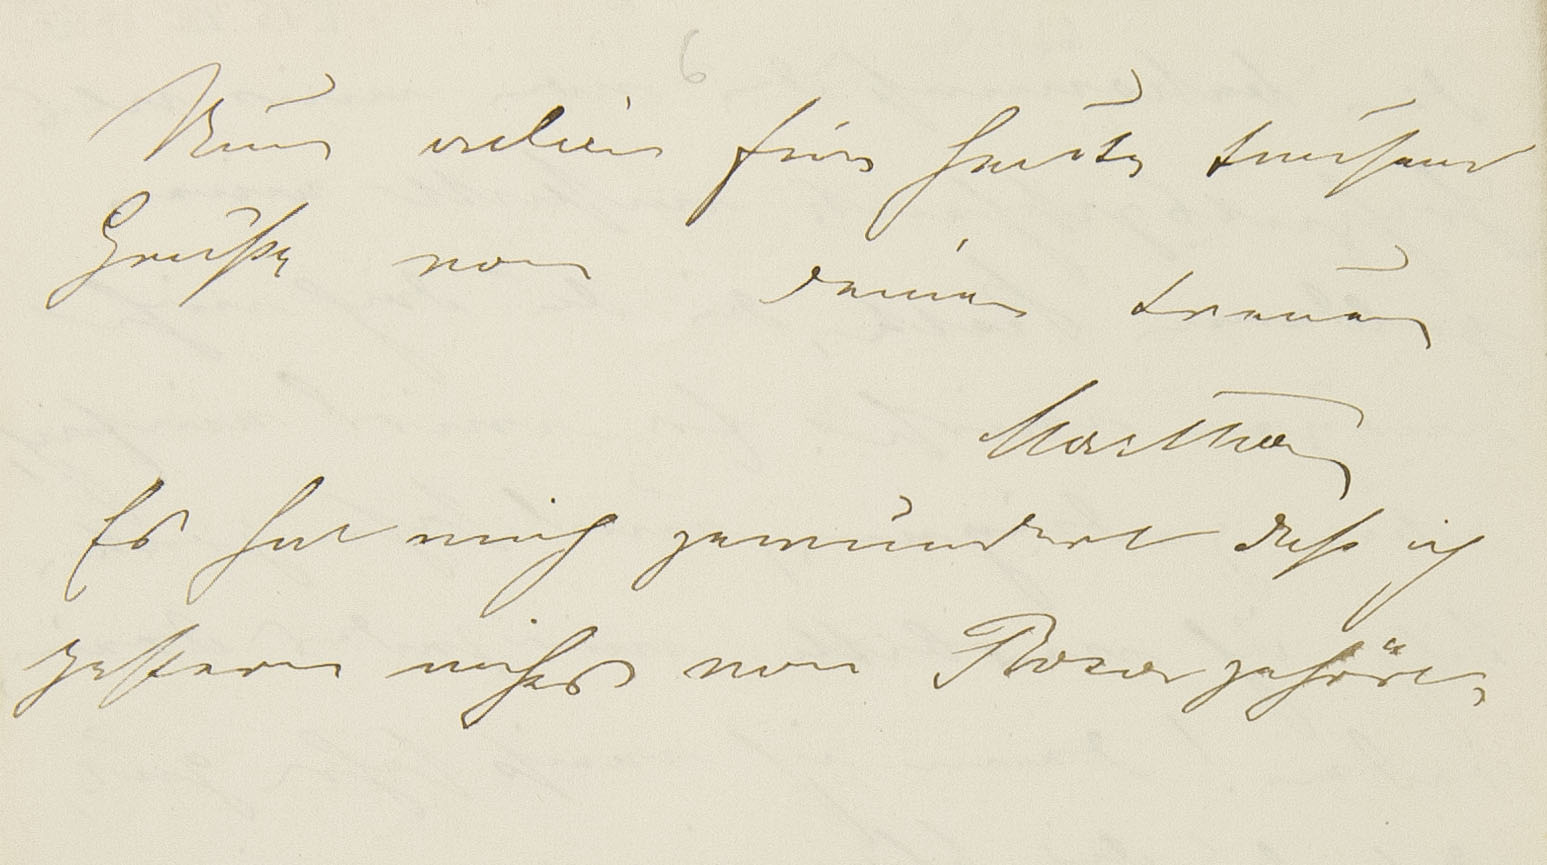 Nun adieu für heute tausend
Grüße von deiner treuen
Martha
Es hat mich gewundert daß ich
gestern nichts von Rosa gehört,